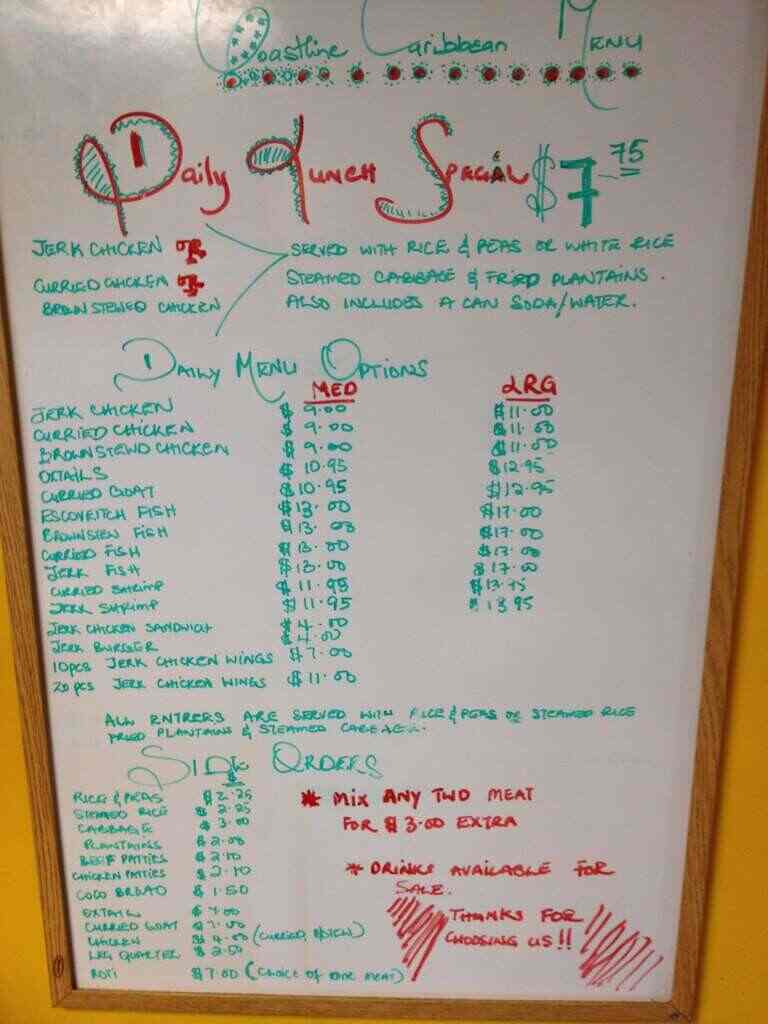 Coastline Caribbean Menu
Daily Lunch Special $7.75
JERK CHICKEN OR
CURRIED CHICKEN OR
BROWN STEWED CHICKEN
SERVED WITH RICE & PEAS OR WHITE RICE
STEAMED CABBAGE & FRIED PLANTAINS.
ALSO INCLUDES A CAN SODA/WATER.
DAILY MENU OPTIONS
MED LRG
JERK CHICKEN $9.00 $11.00
CURRIED CHICKEN $9.00 $11.00
BROWN STEWD CHICKEN $9.00 $11.00
OXTAILS $10.95 $12.95
CURRIED GOAT $10.95 $12.95
ESCOVEITCH FISH $13.00 $17.00
BROWNSTEW FISH $13.00 $17.00
CURRIED FISH $13.00 $17.00
JERK FISH $13.00 $17.00
CURRIED SHRIMP $11.95 $13.95
JERK SHRIMP $11.95 $13.95
JERK CHICKEN SANDWICH $4.00
JERK BURGER $4.00
10pcs JERK CHICKEN WINGS $7.00
20 pcs JERK CHICKEN WINGS $11.00
ALL ENTREES ARE SERVED WITH RICE & PEAS OR STEAMED RICE
FRIED PLANTAINS & STEAMED CABBAGE.
SIDE ORDERS
$
RICE & PEAS $2.25
STEAMED RICE $2.25
CABBAGE $3.00
PLANTAINS $2.00
BEEF PATTIES $2.10
CHICKEN PATTIES $2.10
COCO BREAD $1.50
OXTAIL $7.00
CURRIED GOAT $7.00
CHICKEN $4.00 (CURRIED, B/STEW)
LEG QUARTER $2.50
ROTI $7.00 (CHOICE OF ONE MEAT)
* MIX ANY TWO MEAT
FOR $3.00 EXTRA
* DRINKS AVAILABLE FOR
SALE.
THANKS FOR
CHOOSING US!!